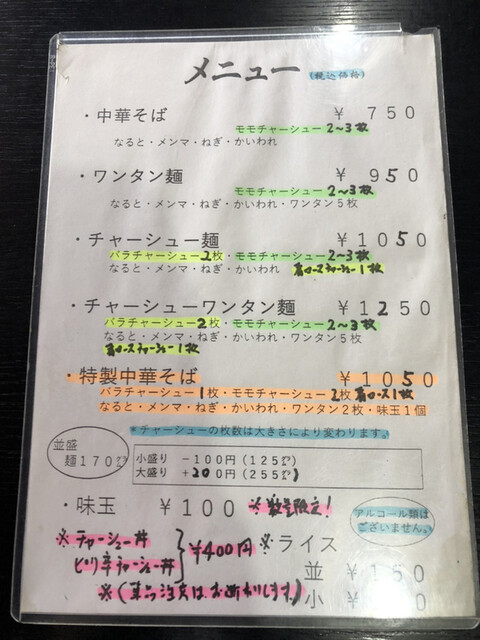 メニュー (税込価格)
・中華そば ￥ 750
モモチャーシュー 2〜3枚
なると・メンマ・ねぎ・かいわれ
・ワンタン麺 ￥ 950
モモチャーシュー 2〜3枚
なると・メンマ・ねぎ・かいわれ・ワンタン5枚
・チャーシュー麺 ￥1050
バラチャーシュー2枚・モモチャーシュー2〜3枚
なると・メンマ・ねぎ・かいわれ 肩ロースチャーシュー1枚
・チャーシューワンタン麺 ￥1250
バラチャーシュー2枚・モモチャーシュー2〜3枚
なると・メンマ・ねぎ・かいわれ・ワンタン5枚
肩ロースチャーシュー1枚
・特製中華そば ￥1050
バラチャーシュー1枚・モモチャーシュー2枚 肩ロース1枚
なると・メンマ・ねぎ・かいわれ・ワンタン2枚・味玉1個
*チャーシューの枚数は大きさにより変わります。
並盛
麺170㌘
小盛り －100円(125㌘)
大盛り ＋200円(255㌘)
・味玉 ￥100 ※数量限定!
アルコール類は
ございません。
※チャーシュー丼
とり辛チャーシュー丼
}￥400円
※(単品注文はお断りします)
※ライス
並 ￥150
小 ￥